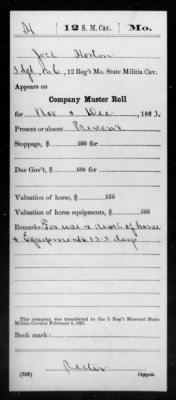 H | 12 S. M. Cav. | Mo.
Joel Horton
Sgt., Co. C, 12 Reg't Mo. State Militia Cav.
Appears on
Company Muster Roll
for Nov & Dec, 1863.
Present or absent Present
Stoppage, $ 100 for
Due Gov't, $ 100 for
Valuation of horse, $ 100
Valuation of horse equipments, $ 100
Remarks: For use & risk of horse
& Equipments 123 days
This company was transferred to the 5 Reg't Missouri State
Militia Cavalry February 4, 1863.
Book mark:
(359)
Copyist.